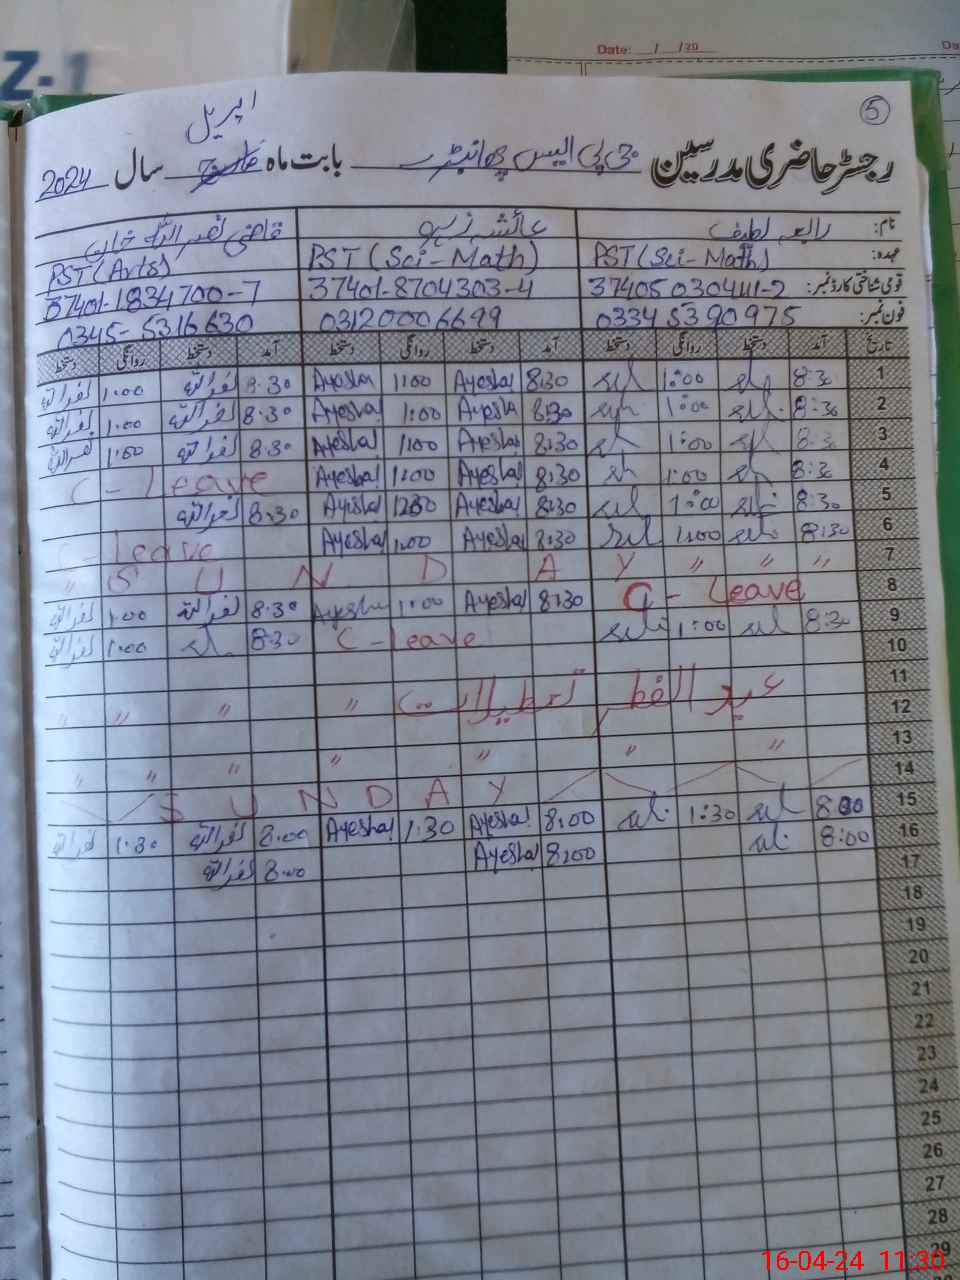 Z-1
Date: __/__/20__
Da
5
اپریل
رجسٹر حاضری مدرسین جی پی ایس بابت ماہ مارچ سال 2024
نام: رابعہ لطیف عائشہ زیب قاضی نصر اللہ خان
عہدہ: PST (Sci-Math) PST (Sci-Math) PST (Arts)
قومی شناختی کارڈ نمبر: 374050304111-2 37401-8704303-4 37401-1834700-7
فون نمبر: 03345390975 03120006699 0345-5316630
تاریخ آمد دستخط روانگی دستخط آمد دستخط روانگی دستخط آمد دستخط روانگی دستخط
1 8:30 1:00 8:30 Ayesha 1:00 Ayesha 8:30 نصراللہ 1:00 نصراللہ
2 8:30 1:00 8:30 Ayesha 1:00 Ayesha 8:30 نصراللہ 1:00 نصراللہ
3 8:30 1:00 8:30 Ayesha 1:00 Ayesha 8:30 نصراللہ 1:00 نصراللہ
4 8:30 1:00 8:30 Ayesha 1:00 Ayesha C-Leave
5 8:30 1:00 8:30 Ayesha 1200 Ayesha 8:30 نصراللہ
6 8:30 1:00 8:30 Ayesha 1:00 Ayesha C-leave
7 " S U N D A Y " " "
8 C-Leave 8:30 Ayesha 1:00 Ayesha 8:30 نصراللہ 1:00 نصراللہ
9 8:30 1:00 C-leave 8:30 1:00 نصراللہ
10
11
12 عید الفطر تعطیلات " " " "
13 " "
14 " " " " "
15 S U N D A Y
16 8:00 1:30 8:00 Ayesha 1:30 Ayesha 8:00 نصراللہ 1:30 نصراللہ
17 8:00 8:00 Ayesha 8:00 نصراللہ
18
19
20
21
22
23
24
25
26
27
28
29
16-04-24 11:30